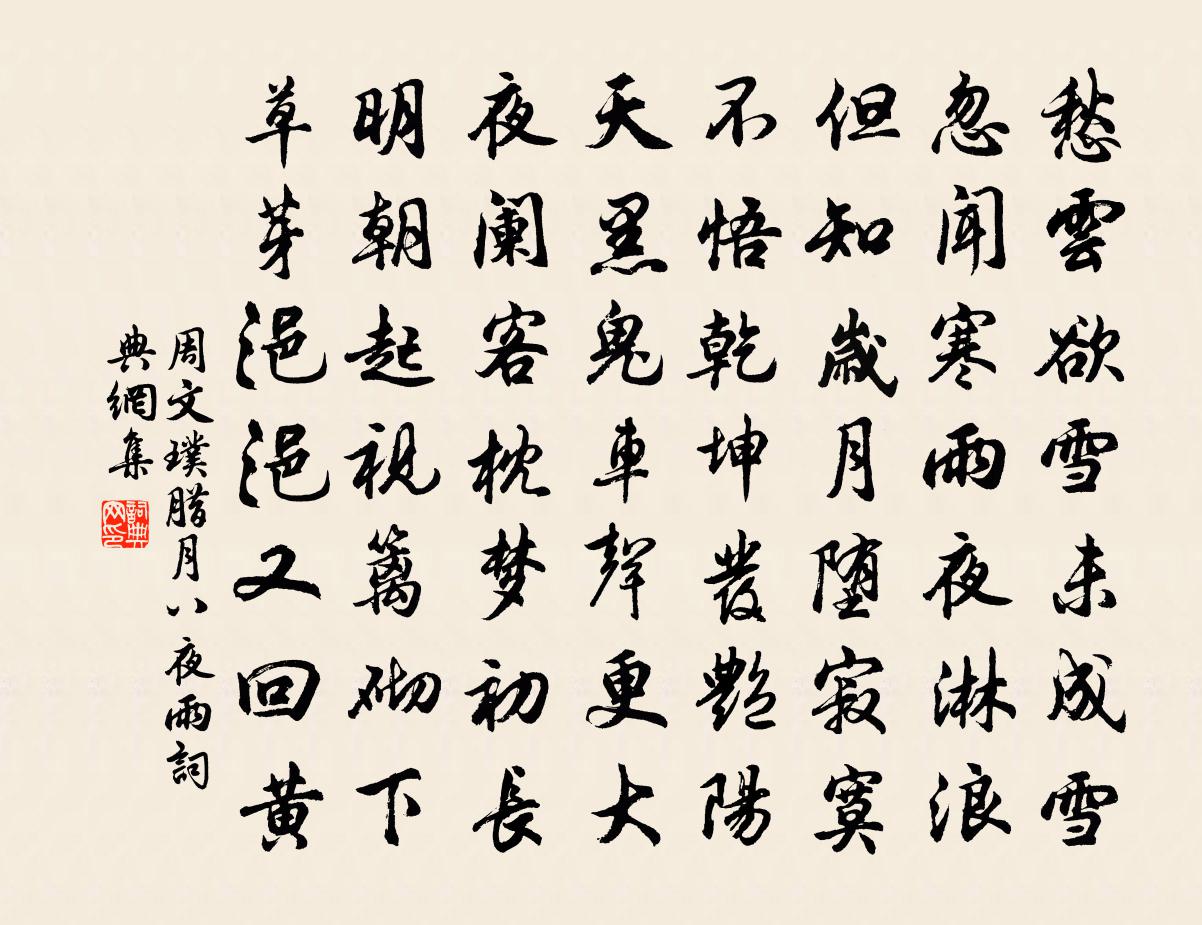 愁雲欲雪未成雪
忽聞寒雨夜淋浪
但知歲月堕寂寞
不悟乾坤發艷陽
天黑鬼車聲更大
夜阑客枕梦初長
明朝起視籬砌下
草芽浥浥又回黃
周文璞腊月八夜雨詞
典網集
詞典网印